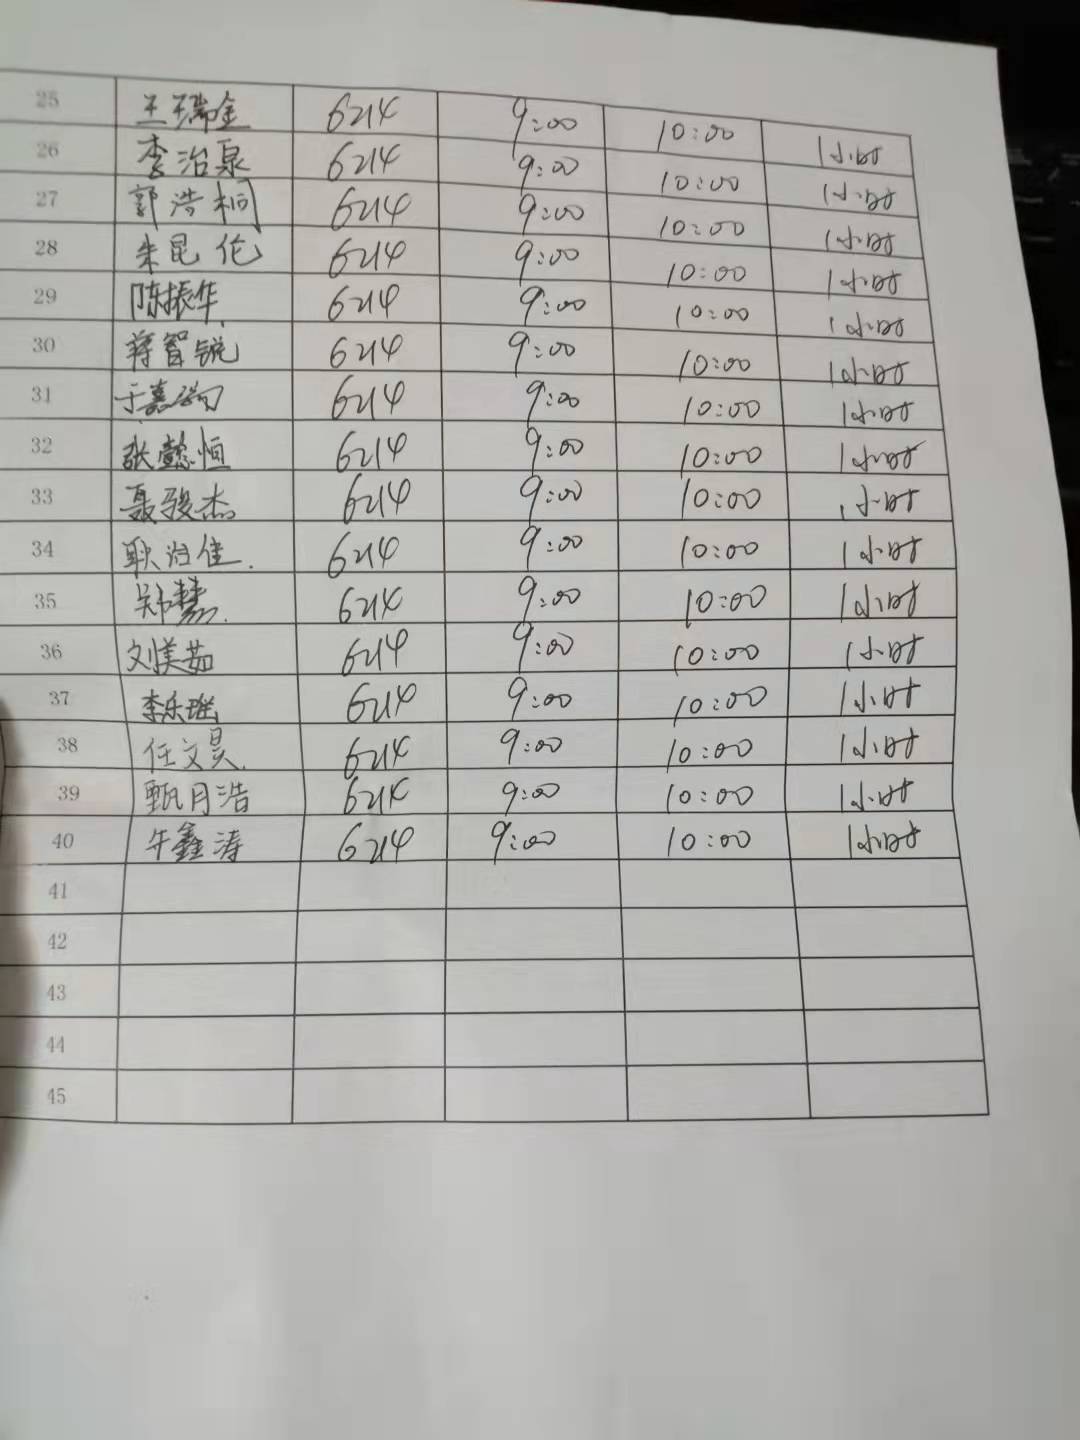 25 王瑞金 6214 9:00 10:00 1小时
26 李治泉 6214 9:00 10:00 1小时
27 郭浩桐 6214 9:00 10:00 1小时
28 朱昆伦 6214 9:00 10:00 1小时
29 陈振华 6214 9:00 10:00 1小时
30 蒋智锐 6214 9:00 10:00 1小时
31 于嘉 6214 9:00 10:00 1小时
32 张懿恒 6214 9:00 10:00 1小时
33 聂骏杰 6214 9:00 10:00 1小时
34 耿佳 6214 9:00 10:00 1小时
35 郑慧 6214 9:00 10:00 1小时
36 刘美茹 6214 9:00 10:00 1小时
37 李乐瑶 6214 9:00 10:00 1小时
38 任文昊 6214 9:00 10:00 1小时
39 甄月浩 6214 9:00 10:00 1小时
40 牛鑫涛 6214 9:00 10:00 1小时
41
42
43
44
45